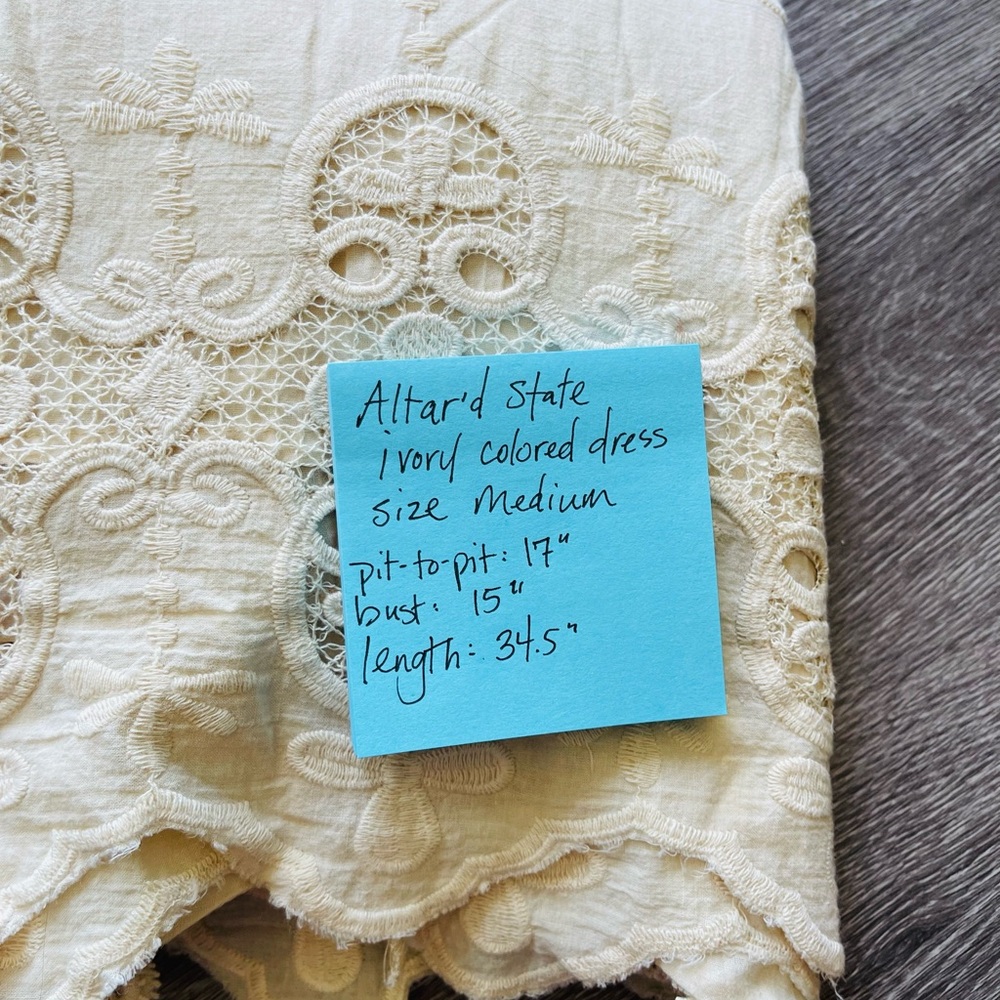 Altar'd State
ivory colored dress
size Medium
pit-to-pit: 17"
bust: 15"
length: 34.5"